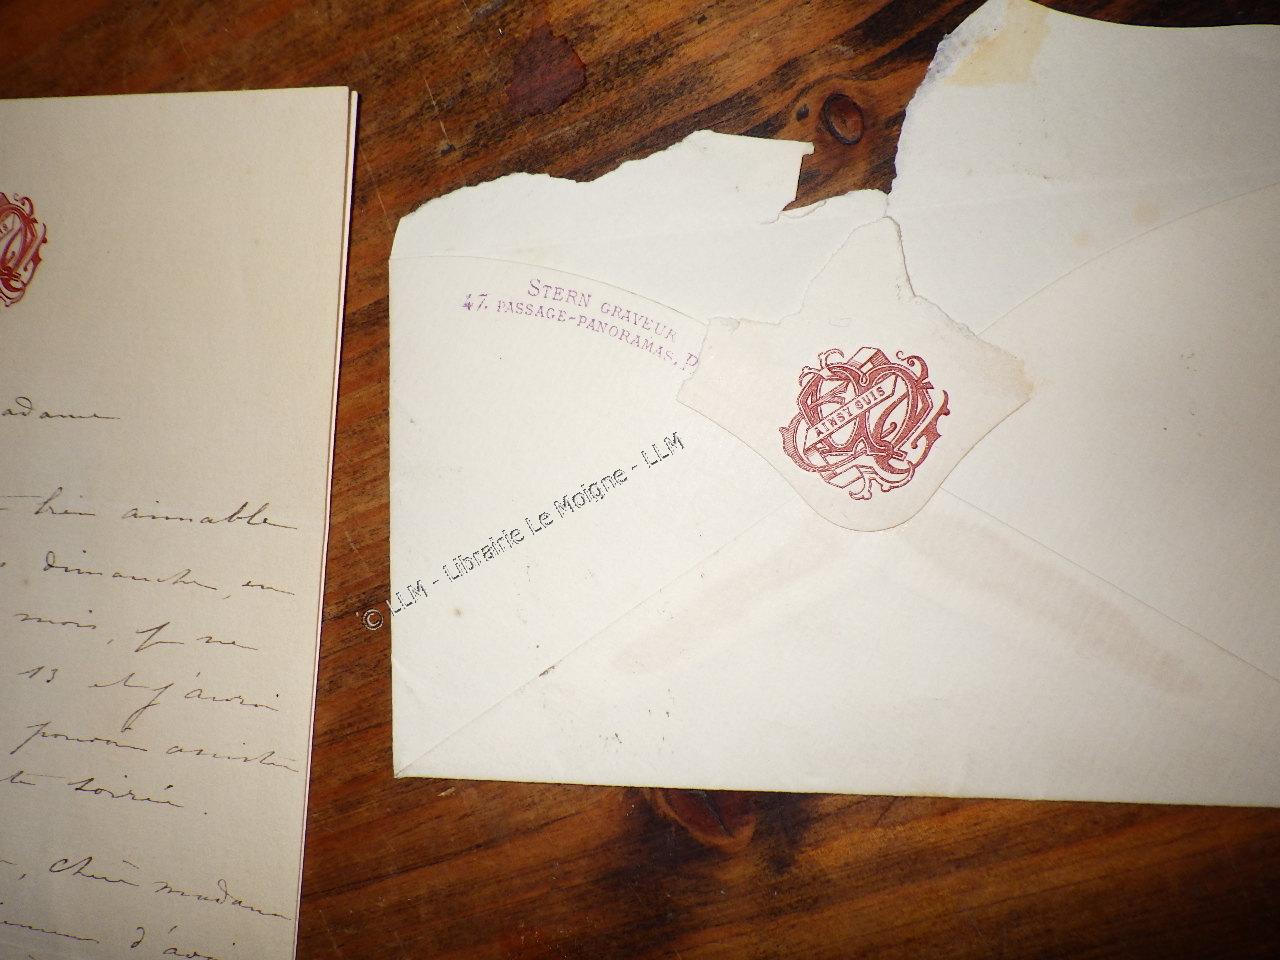 adame
bien aimable
dimanche, en
mois, je ne
13 et j'aurai
pouvoir assister
soirée.
, chère madame
d'avoi
STERN GRAVEUR
47. PASSAGE-PANORAMAS, P
AINSY SUIS
© LLM - Librairie Le Moigne - LLM